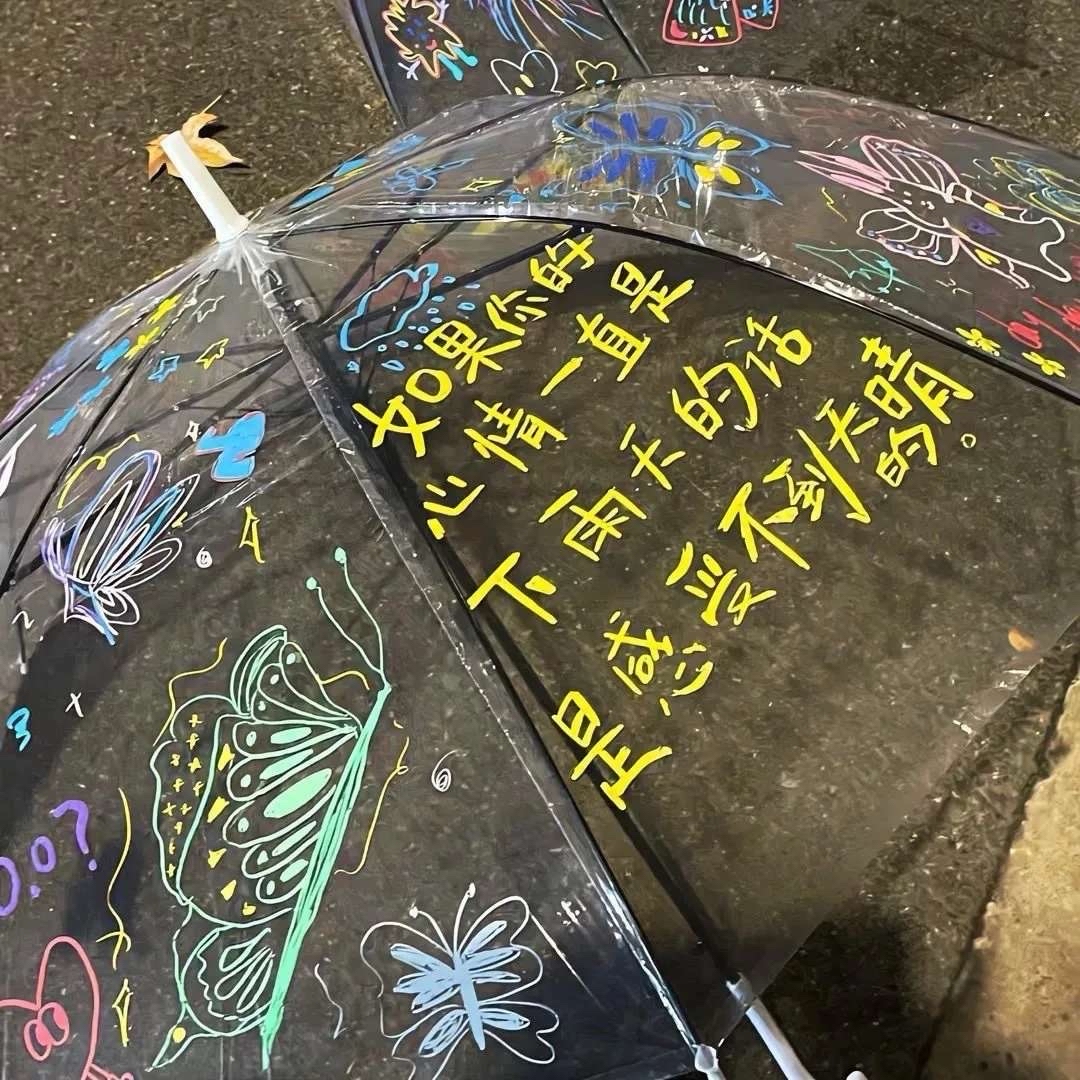 如果你的
心情一直是
下雨天的话
是感受不到天晴
的。
0.0?